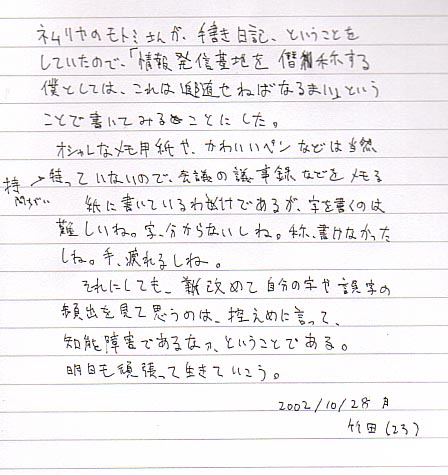 ネムリヤのモトミさんが、手書き日記、ということを
していたので、「情報発信基地を僭称する
僕としては、これは追随せねばなるまい」という
ことで書いてみることにした。
オシャレなメモ用紙や、かわいいペンなどは当然
持→待っていないので、会議の議事録などをメモる
間ちがい
紙に書いているわけであるが、字を書くのは
難しいね。字、分からないしね。称、書けなかった
しね。手、疲れるしね。
それにしても、改めて自分の字や誤字の
頻出を見て思うのは、控えめに言って、
知能障害であるなァ、ということである。
明日も頑張って生きていこう。
2002/10/28 月
竹田(23)